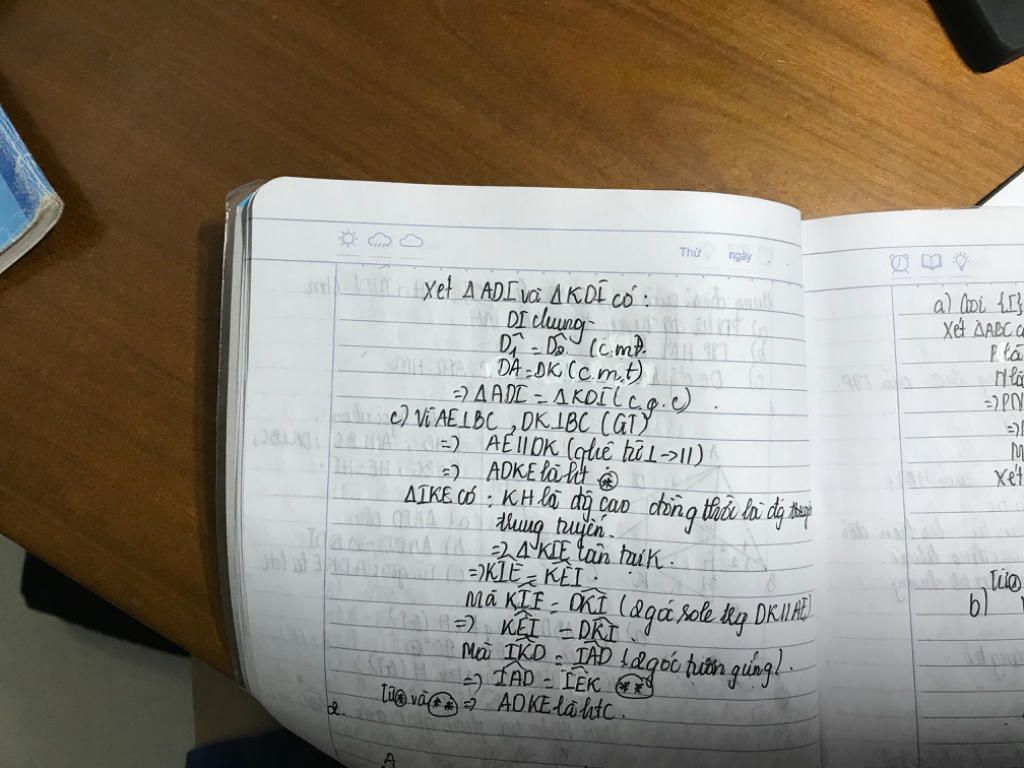 Thứ ngày
Xét Δ ADI và Δ KDI có :
DI chung
D̂1 = D̂2 (c.m.t).
DA = DK (c.m.t)
=> Δ ADI = Δ KDI (c.g.c) .
c) Vì AE⊥BC , DK⊥BC (GT)
=> AE // DK (qhệ từ ⊥→//)
=> ADKE là ht (*)
ΔIKE có : KH là độ cao đồng thời là đg
trung tuyến.
=> Δ KIE cân tại K.
=> KIE = KEI .
Mà KIE = DKI (2 góc sole tg DK//AE)
=> KEI = DKI
Mà IKD = IAD (2 góc tương ứng).
=> IAD = IEK (**)
Từ (*) và (**) => ADKE là htC.
2.
A
a) Gọi {I}
Xét ΔABC c
P là
N là
=> PN
=>
M
Xét
Từ
b)